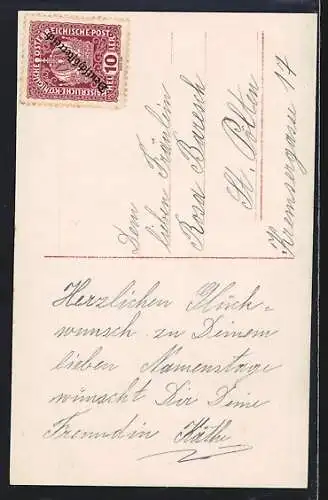 KAISERLICHE KÖNIGLICHE ÖSTERREICHISCHE POST
Deutschösterreich
10 HELLER 10
Dem
lieben Fräulein
Rosa
St. Pölten
Kremsergasse 17
Herzlichen Glück-
wunsch zu Deinem
lieben Namenstage
wünscht Dir Deine
Freundin Käthe